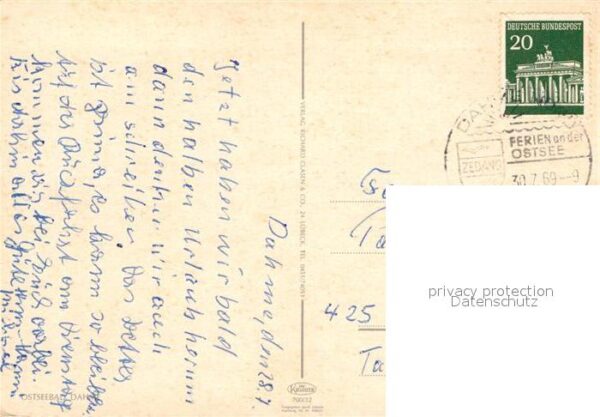 Dahme, den 28.7.
Jetzt haben wir bald
den halben Urlaub herum
dann denken wir auch
ans schreiben. Das Wetter
ist prima, es kann so bleiben.
Auf der Rückfahrt am Dienstag
kommen wir bei Euch vorbei.
Bis dahin alles gute
OSTSEEBAD DAHME
VERLAG RICHARD CLASEN & CO. 24 LÜBECK, TEL.
Krüger
700/12
DEUTSCHE BUNDESPOST
20
FERIEN an der
OSTSEE
30.7.69
425
privacy protection
Datenschutz